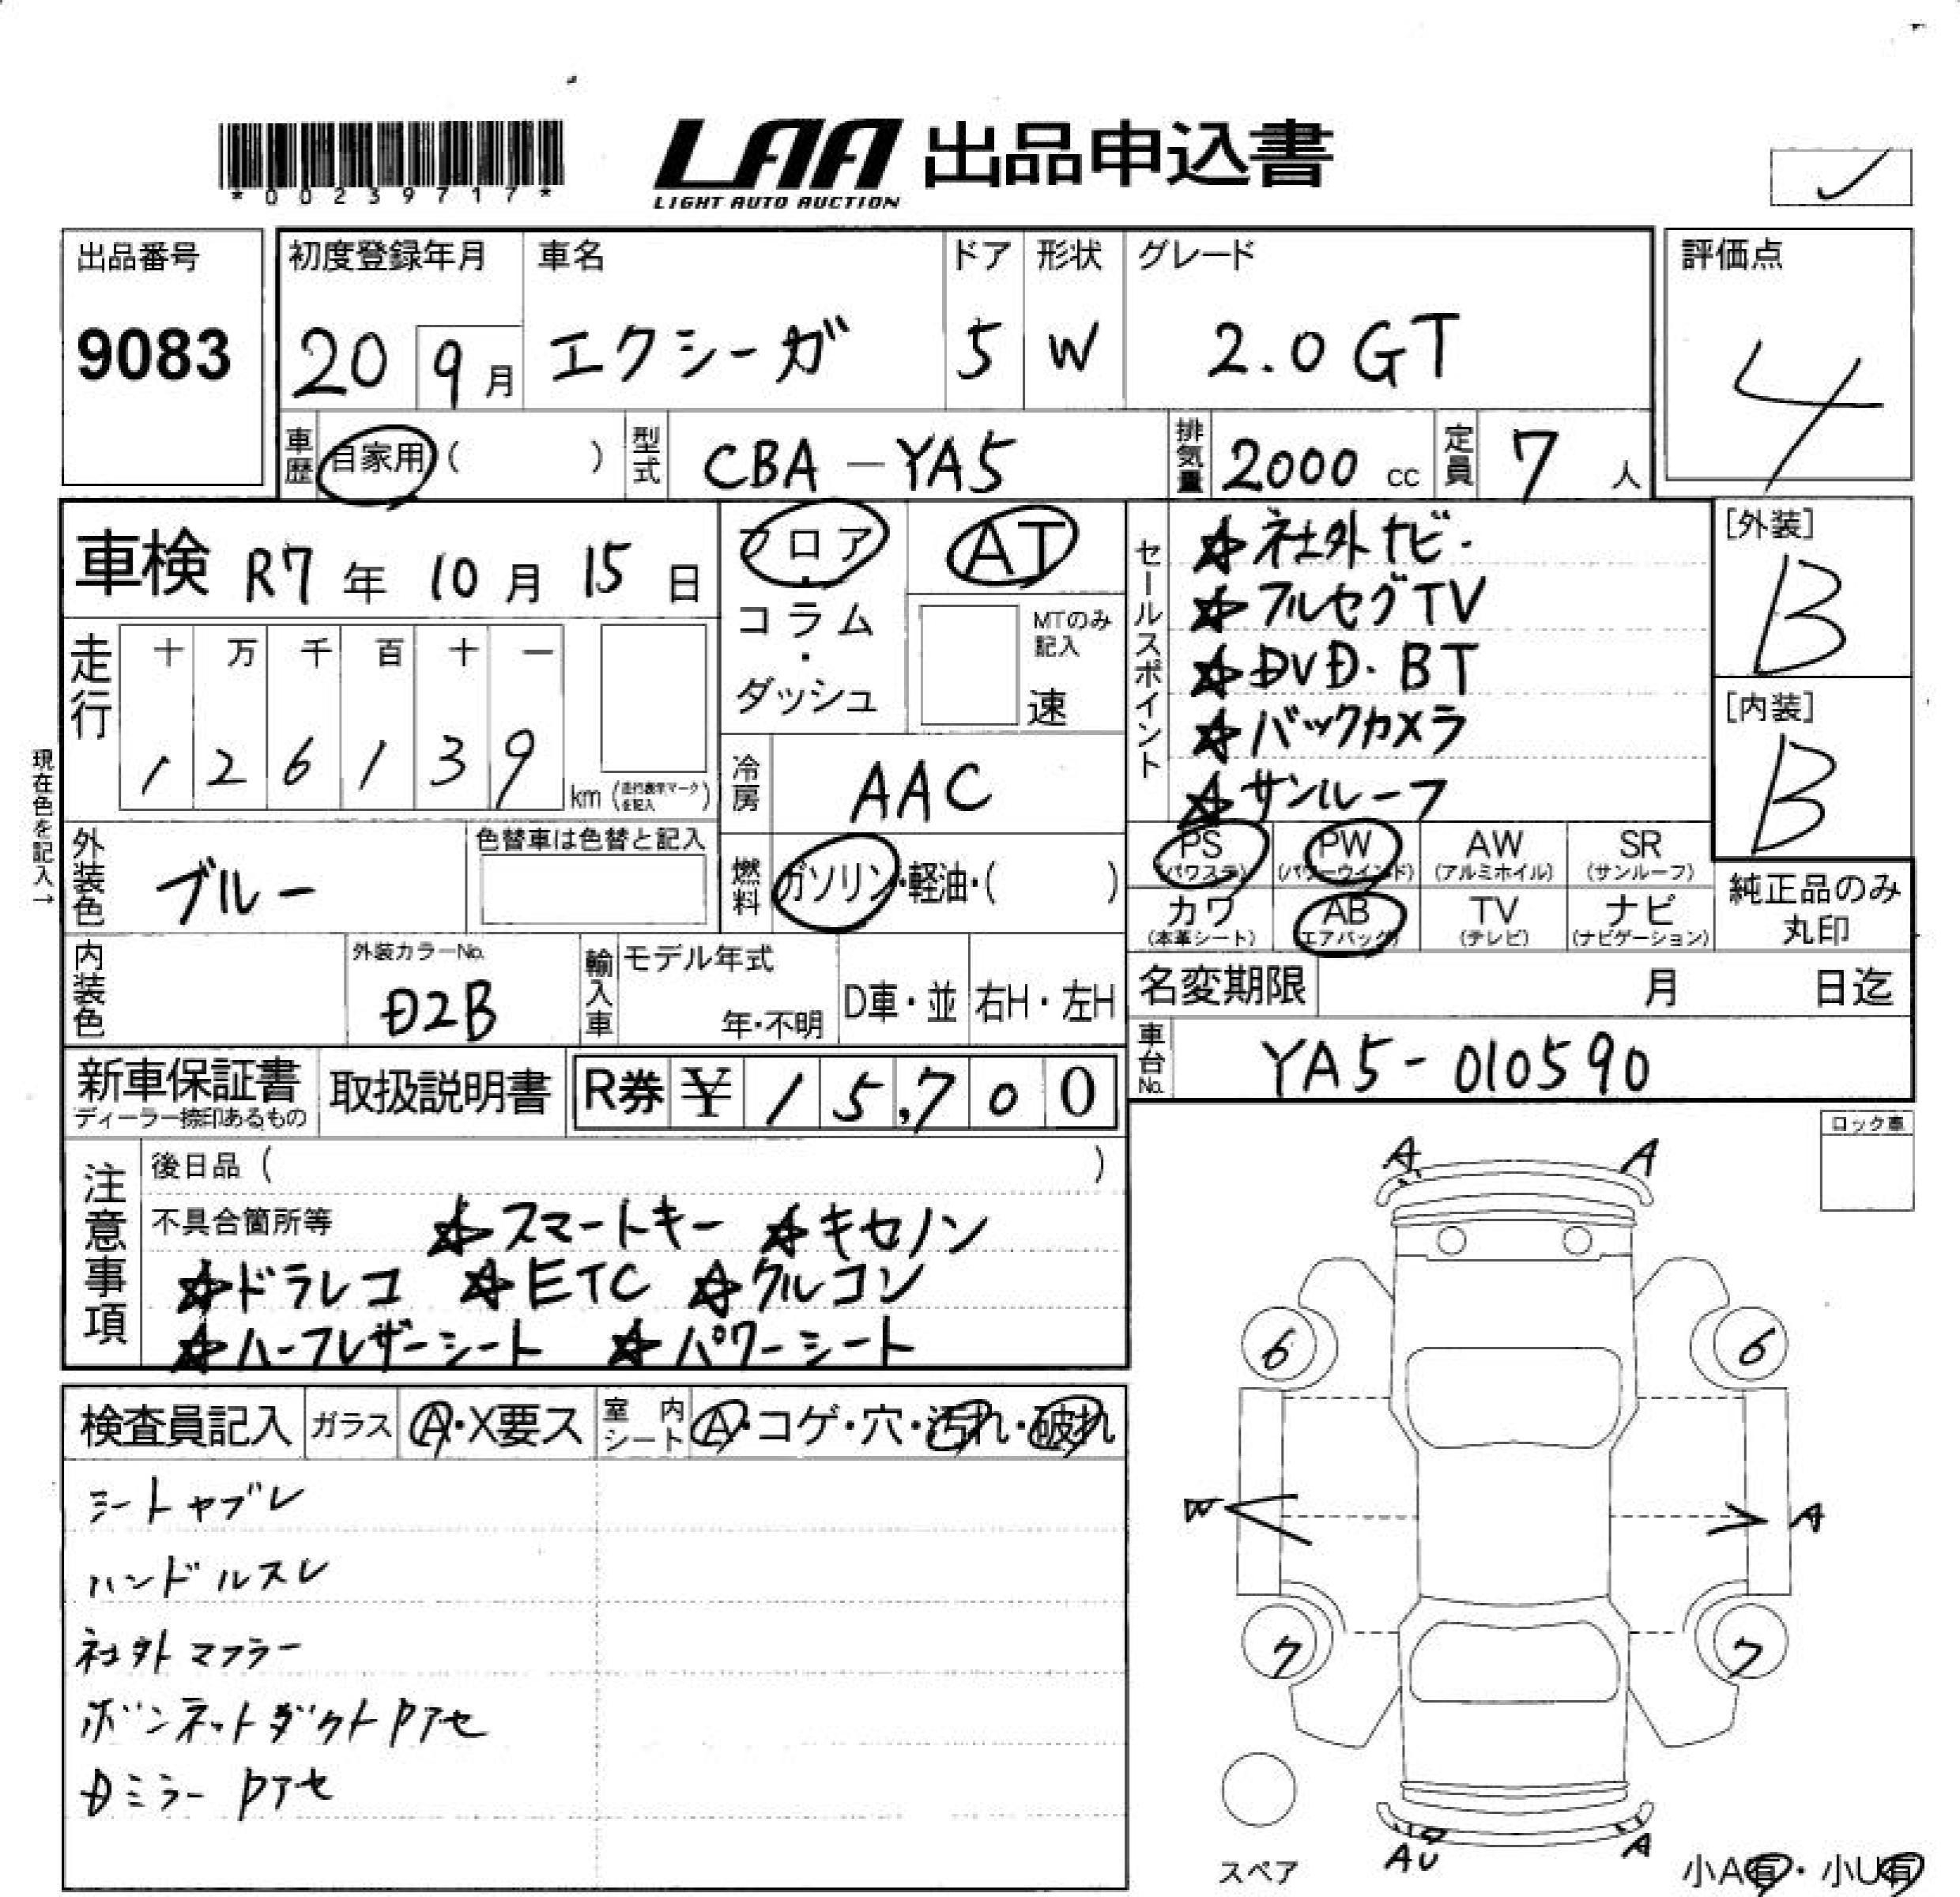 *00239717*
LAA 出品申込書
LIGHT AUTO AUCTION
出品番号
9083
初度登録年月 車名 ドア 形状 グレード
20 9月 エクシーガ 5 W 2.0 GT
評価点
4
車歴 自家用 ( ) 型式 CBA-YA5 排気量 2000 cc 定員 7 人
車検 R7年 10月 15日
フロア・コラム・ダッシュ
AT
MTのみ記入
速
走行 十 万 千 百 十 一
1 2 6 1 3 9 km (走行表示マークを記入)
冷房 AAC
現在色を記入→
外装色 ブルー
色替車は色替と記入
燃料 ガソリン・軽油・( )
セールスポイント
☆社外ナビ・
☆フルセグTV
☆DVD・BT
☆バックカメラ
☆サンルーフ
[外装]
B
[内装]
B
PS (パワステ) PW (パワーウインド) AW (アルミホイル) SR (サンルーフ)
カワ (本革シート) AB (エアバッグ) TV (テレビ) ナビ (ナビゲーション)
純正品のみ丸印
内装色
外装カラーNo.
D2B
輸入車 モデル年式 年・不明 D車・並 右H・左H
名変期限 月 日迄
車台No. YA5-010590
新車保証書
ディーラー捺印あるもの
取扱説明書
R券 ¥ 15,700
注意事項
後日品 ( )
不具合箇所等 ☆スマートキー ☆キセノン
☆ドラレコ ☆ETC ☆クルコン
☆ハーフレザーシート ☆パワーシート
検査員記入 ガラス A・X要ス 室内シート A・コゲ・穴・汚れ・破れ
シートヤブレ
ハンドルスレ
社外マフラー
ボンネットダクトPアセ
Dミラー Pアセ
ロック車
A A
6 6
W A
7 7
スペア
AU A
小A有・小U有